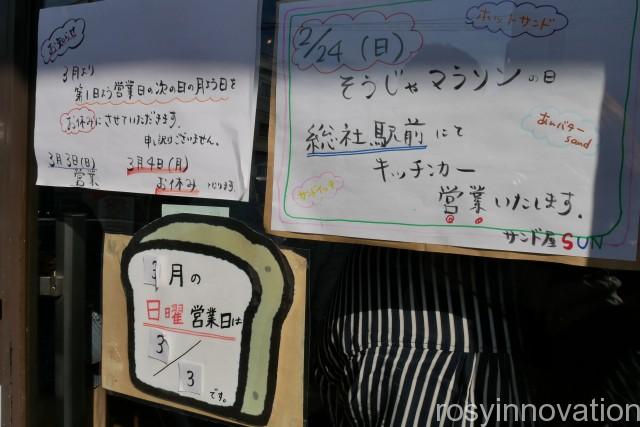 お知らせ
3月より
第1日よう営業日の次の日の月よう日を
お休みにさせていただきます.
申し訳ございません.
3月3日(日)
営業
3月4日(月)
お休み となります.
2/24(日)
ホットサンド
そうじゃマラソンの日
あんバター
sand
総社駅前にて
キッチンカー
サンドイッチ
営業いたします.
サンド屋SUN
3月の
日曜営業日は
3/3
です。
rosyinnovation